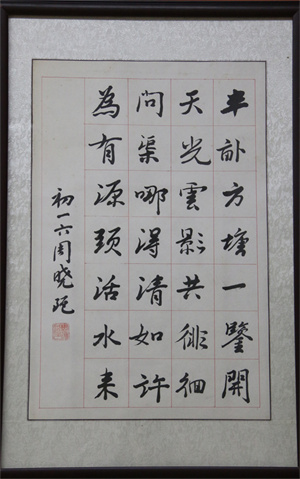 半畝方塘一鑒開
天光雲影共徘徊
問渠哪得清如許
為有源頭活水来
初一六周晓